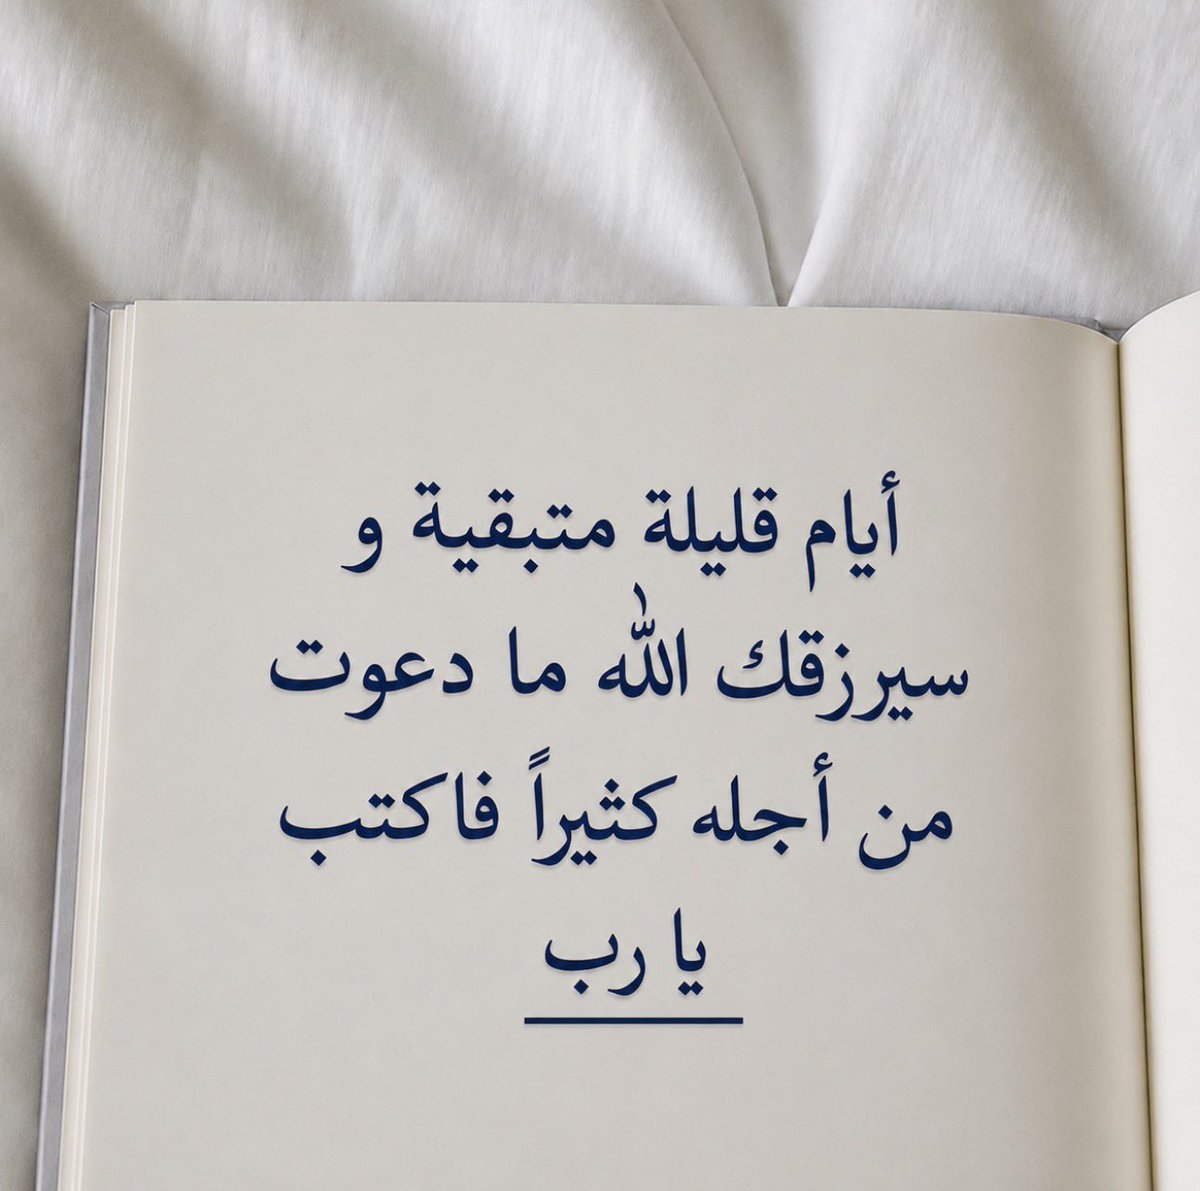 أيام قليلة متبقية و
سيرزقك الله ما دعوت
من أجله كثيراً فاكتب
يا رب